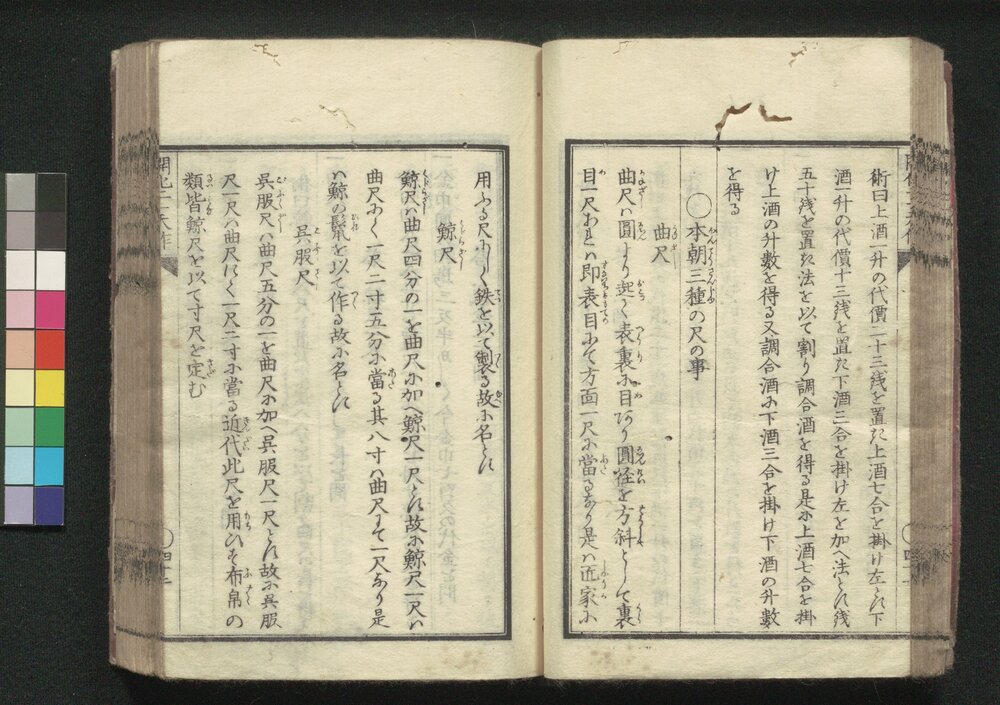 術曰上酒一升の代價二十三銭を置き上酒七合を掛け左とし下
酒一升の代價十三銭を置た下酒三合を掛け左を加へ法とし銭
五十銭を置き法を以て割り調合酒を得る是ホ上酒七合を掛
け上酒の升數を得る又調合酒ホ下酒三合を掛け下酒の升數
を得る
〇本朝三種の尺の事
曲尺
曲尺ハ圓より起く表裏ホ目あり圓径を方斜として裏
目一尺なれハ即表目ホて方面一尺ホ當るなり是ハ匠家ホ
用ふる尺ホして鉄を以て製る故ホ名とす
鯨尺
鯨尺ハ曲尺四分の一を曲尺ホ加へ鯨尺一尺とす故ホ鯨尺一尺ハ
曲尺ホく一尺二寸五分ホ當る其八寸ハ曲尺すて一尺なり是
ハ鯨の鬚を以て作る故ホ名とす
呉服尺
呉服尺ハ曲尺五分の一を曲尺ホ加へ呉服尺一尺とす故ホ呉服
尺一尺ハ曲尺にく一尺二寸ホ當る近代此尺を用ひそ布帛の
類皆鯨尺を以て寸尺を定む